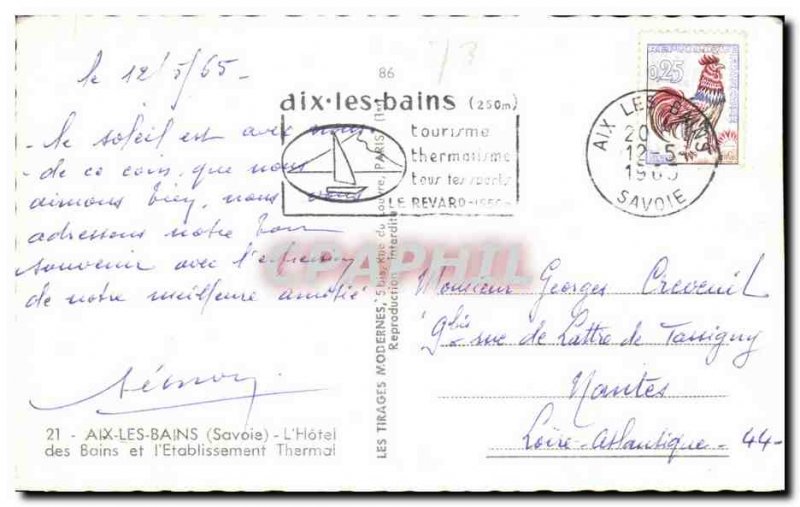 le 12/5/65-
le soleil est avec nous
de ce coin, que nous
aimons bien, nous vous
adressons notre bon
souvenir avec l'expression
de notre meilleure amitié
21 - AIX-LES-BAINS (Savoie) - L'Hôtel
des Bains et l'Etablissement Thermal
86
aix·les·bains (250m)
tourisme
thermalisme
tous les sports
LE REVARD
LES TIRAGES MODERNES, 5 bis, Rue du Louvre, PARIS. (1
Reproduction interdite
0,25
AIX LES BAINS
20
12-5-
1965
SAVOIE
CPAPHIL
Monsieur Georges Creveuil
9bis rue de Lattre de Tassigny
Nantes
Loire-Atlantique - 44-